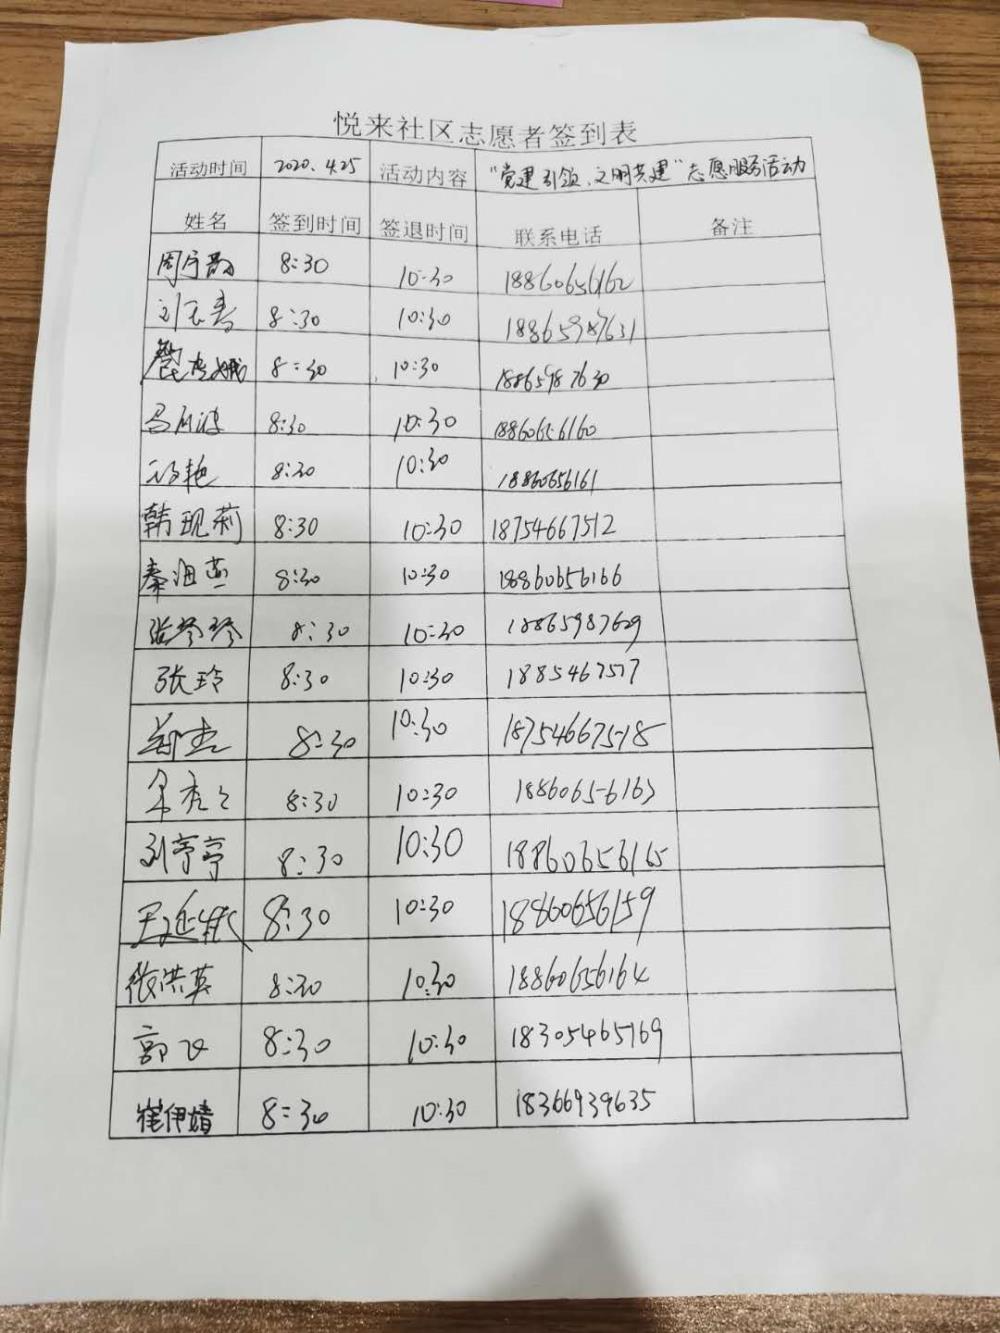 悦来社区志愿者签到表
活动时间 2020.4.25 活动内容 "党建引领、文明共建"志愿服务活动
姓名 签到时间 签退时间 联系电话 备注
8:30 10:30 18860656162
8:30 10:30 18865987631
8:30 10:30 18865987630
8:30 10:30 18860656160
8:30 10:30 18860656161
韩现莉 8:30 10:30 18754667512
秦海燕 8:30 10:30 18860656166
张琴琴 8:30 10:30 18865987629
张玲 8:30 10:30 1885467517
8:30 10:30 18754667518
8:30 10:30 18860656163
刘亭亭 8:30 10:30 18860656165
8:30 10:30 18860656159
张洪英 8:30 10:30 18860656164
郭飞 8:30 10:30 18305465769
崔伊婧 8:30 10:30 18366939635